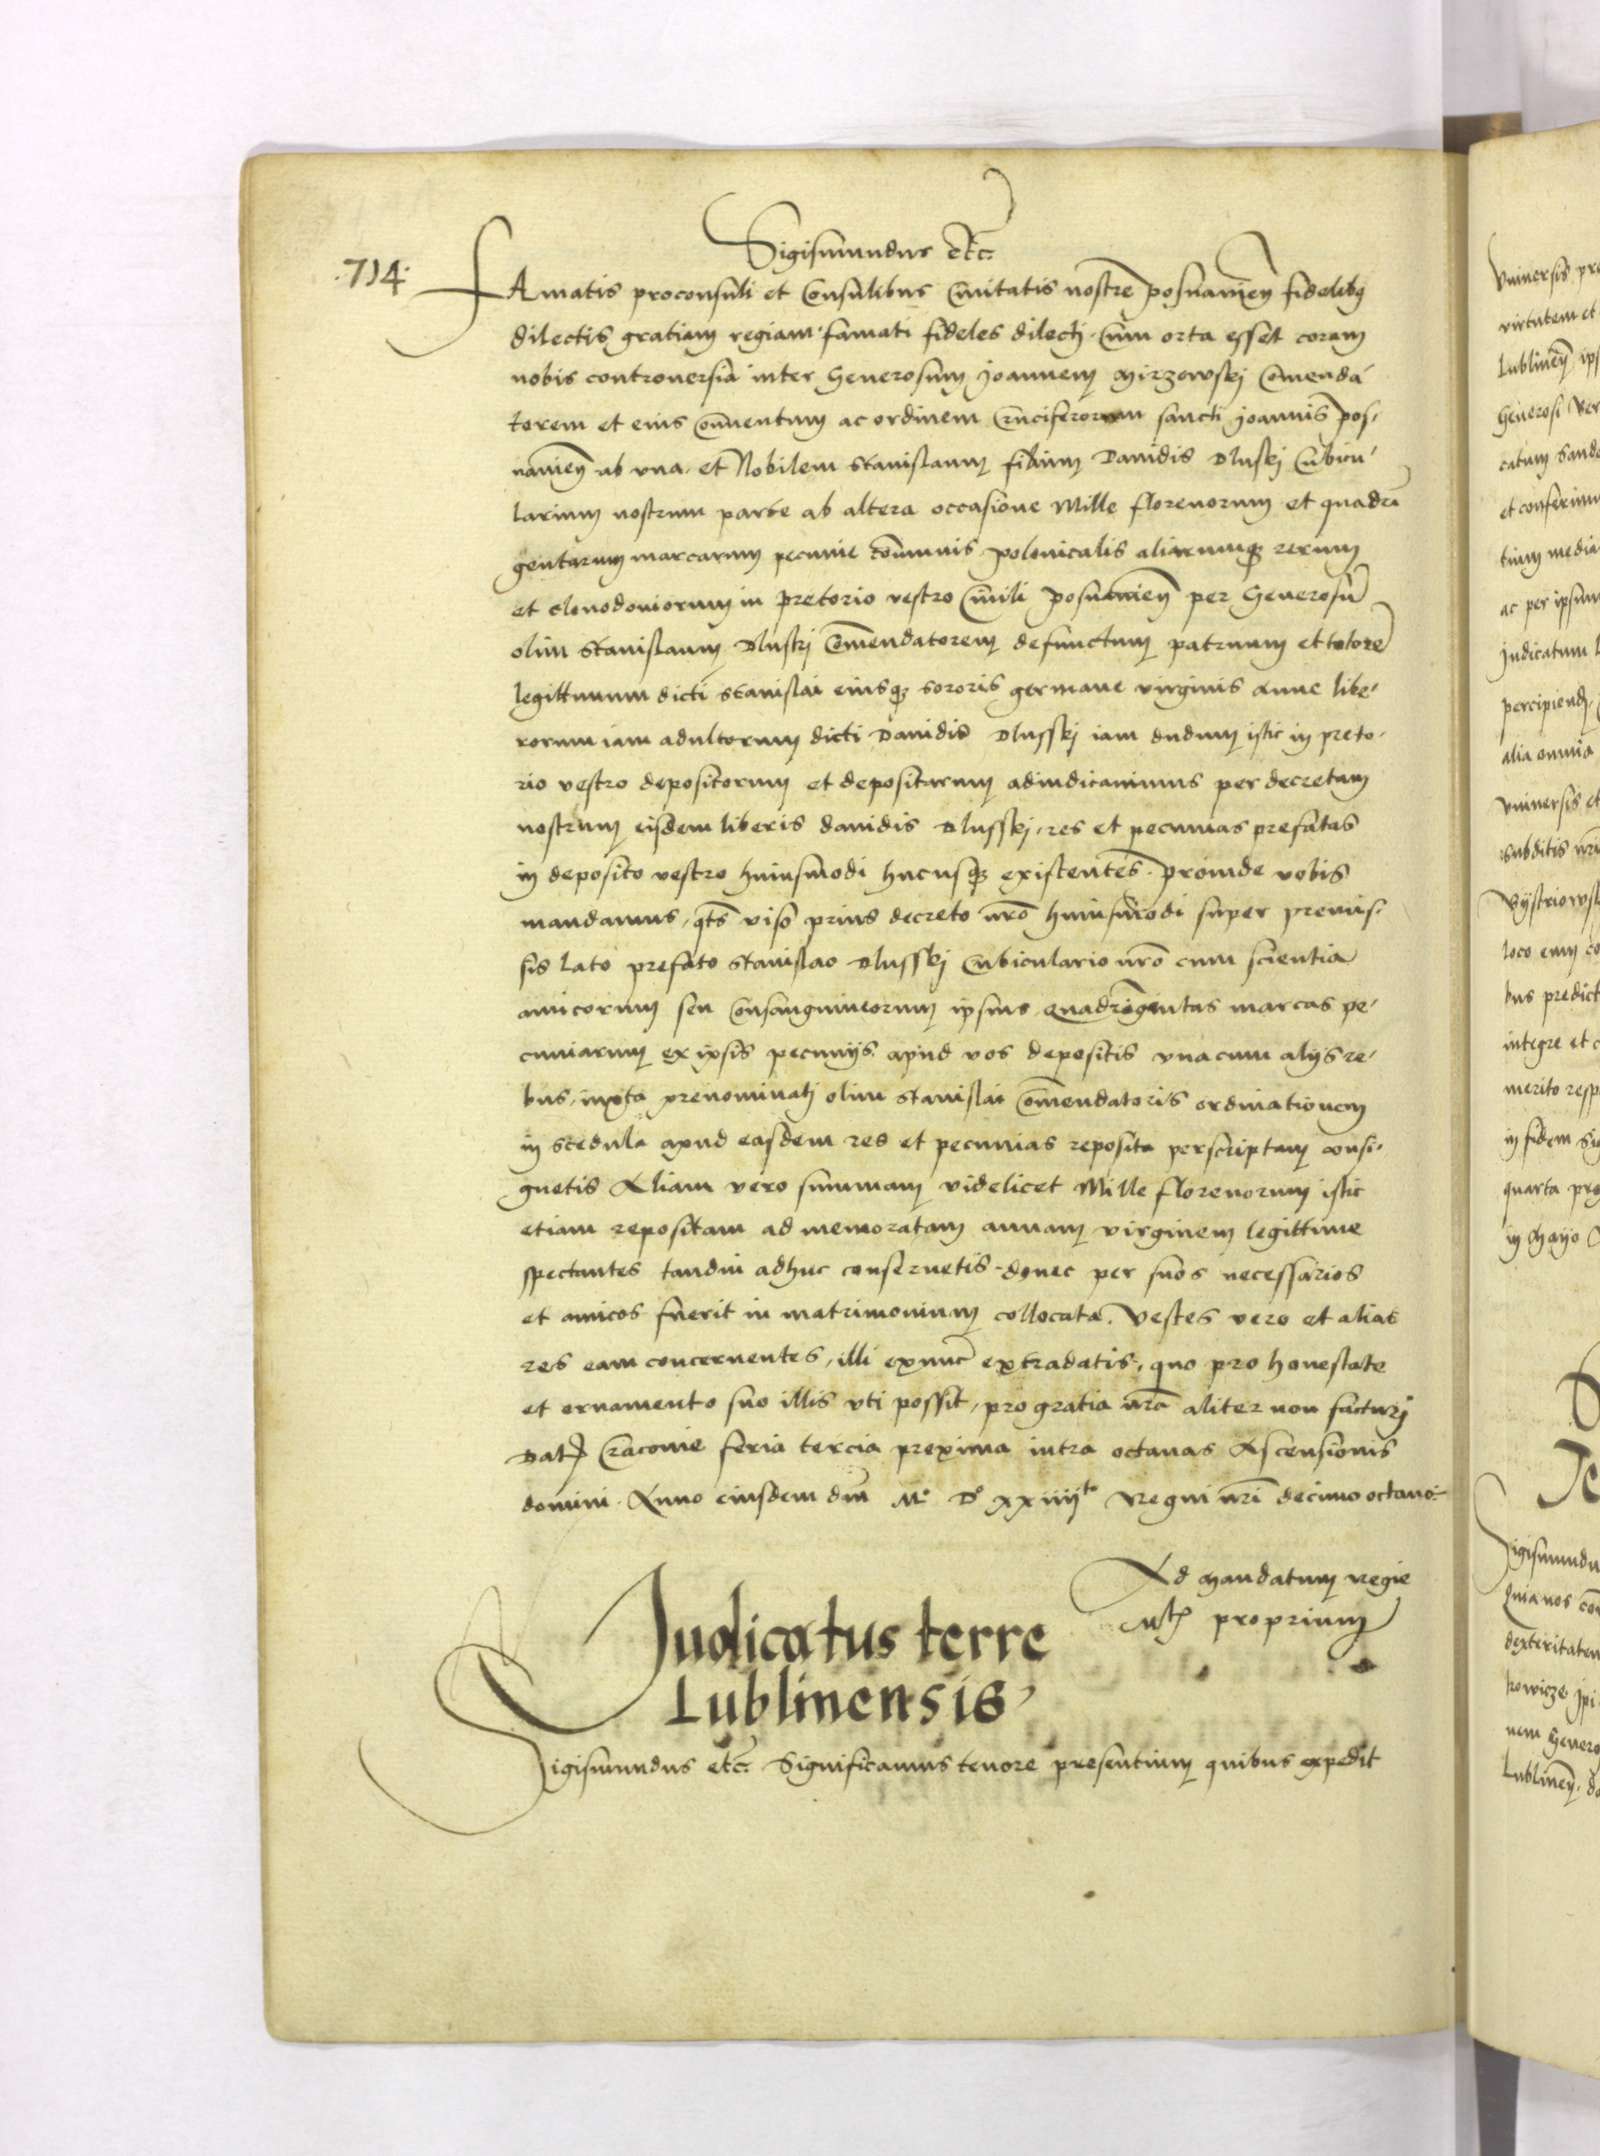 Sigismundus etc.
·714·
FAmatis proconsuli et Consulibus Civitatis nostre posnanien fidelibq
dilectis gratiam regiam. famati fideles dilectj. Cum orta esset coram
nobis controversia inter Generosum Joannem Mirzowskj Comenda-
torem et eius conventum ac ordinem Cruciferorum sancti Joannis pos-
nanien ab vna. et Nobilem Stanislaum filium Davidis Dluskj Cubicu-
larium nostrum parte ab altera occasione Mille florenorum et quadrin
gentarum marcarum pecunie communis polonicalis aliarumq rerum
et clenodoniorum in pretorio vestro Civili posnanien per Generosu
olim Stanislaum Dluskj Comendatorem defunctum patruum et tutore
legittimum dicti Stanislai eiusq sororis germane virginis Anne libe-
rorum iam adultorum dicti Davidis Dlusskj iam dudum istic in preto-
rio vestro depositorum et depositarum adiudicavimus per decretum
nostrum eisdem liberis davidis Dlusskj. res et pecunias prefatas
in deposito vestro huiusmodi hucusq existentes. proinde vobis
mandamus, qts viso prius decreto nro huiusmodi super premis-
sis lato prefato Stanislao Dlusskj Cubiculario nro cum scientia
amicorum seu Consanguineorum ipsius quadringentas marcas pe-
cuniarum ex ipsis pecunijs apud vos depositis vna cum alijs re-
bus, iuxta prenominatj olim Stanislai Comendatoris ordinationem
in scedula apud easdem res et pecunias reposita perscriptam consi-
gnetis Aliam vero summam videlicet Mille florenorum istic
etiam repositam ad memoratam annam virginem legittime
spectantes tandiu adhuc conservetis. donec per suos necessarios
et amicos fuerit in matrimonium collocata. Vestes vero et alias
res eam concernentes, illi exnunc extradatis, quo pro honestate
et ornamento suo illis vti possit, pro gratia nra aliter non facturj
Dat Cracovie feria tercia proxima intra octavas Ascensionis
domini. Anno eiusdem dni Mº Dº xxiiijto Regni nri decimo octavo.
Ad Mandatum Regie
Mtis proprium
Judicatus terre
Lublinensis
Sigismundus etc. Significamus tenore presentium quibus expedit
virtutem et
Lublinen ips
et conferimu
ac per ipsum
alia omnia
loco eum co
bus predict
integre et c
merito resp
quarta pro
in Mayo
Sigismundu
Quia nos
dexteritatem
Lublinen. do